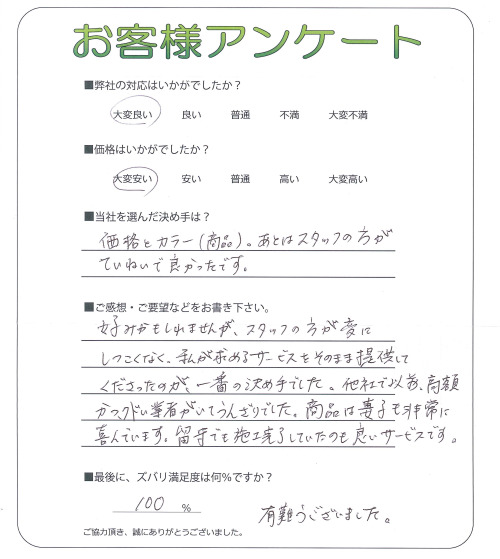 お客様アンケート
■弊社の対応はいかがでしたか?
大変良い 良い 普通 不満 大変不満
■価格はいかがでしたか?
大変安い 安い 普通 高い 大変高い
■当社を選んだ決め手は?
価格とカラー(商品)。あとはスタッフの方が
ていねいで良かったです。
■ご感想・ご要望などをお書き下さい。
好みかもしれませんが、スタッフの方が変に
しつこくなく、私が求めるサービスをそのまま提供して
くださったのが、一番の決め手でした。他社で以前、高額
かつクドい業者がいてうんざりでした。商品は妻子も非常に
喜んでいます。留守でも施工完了していたのも良いサービスです。
■最後に、ズバリ満足度は何%ですか?
100 %
有難うございました。
ご協力頂き、誠にありがとうございました。